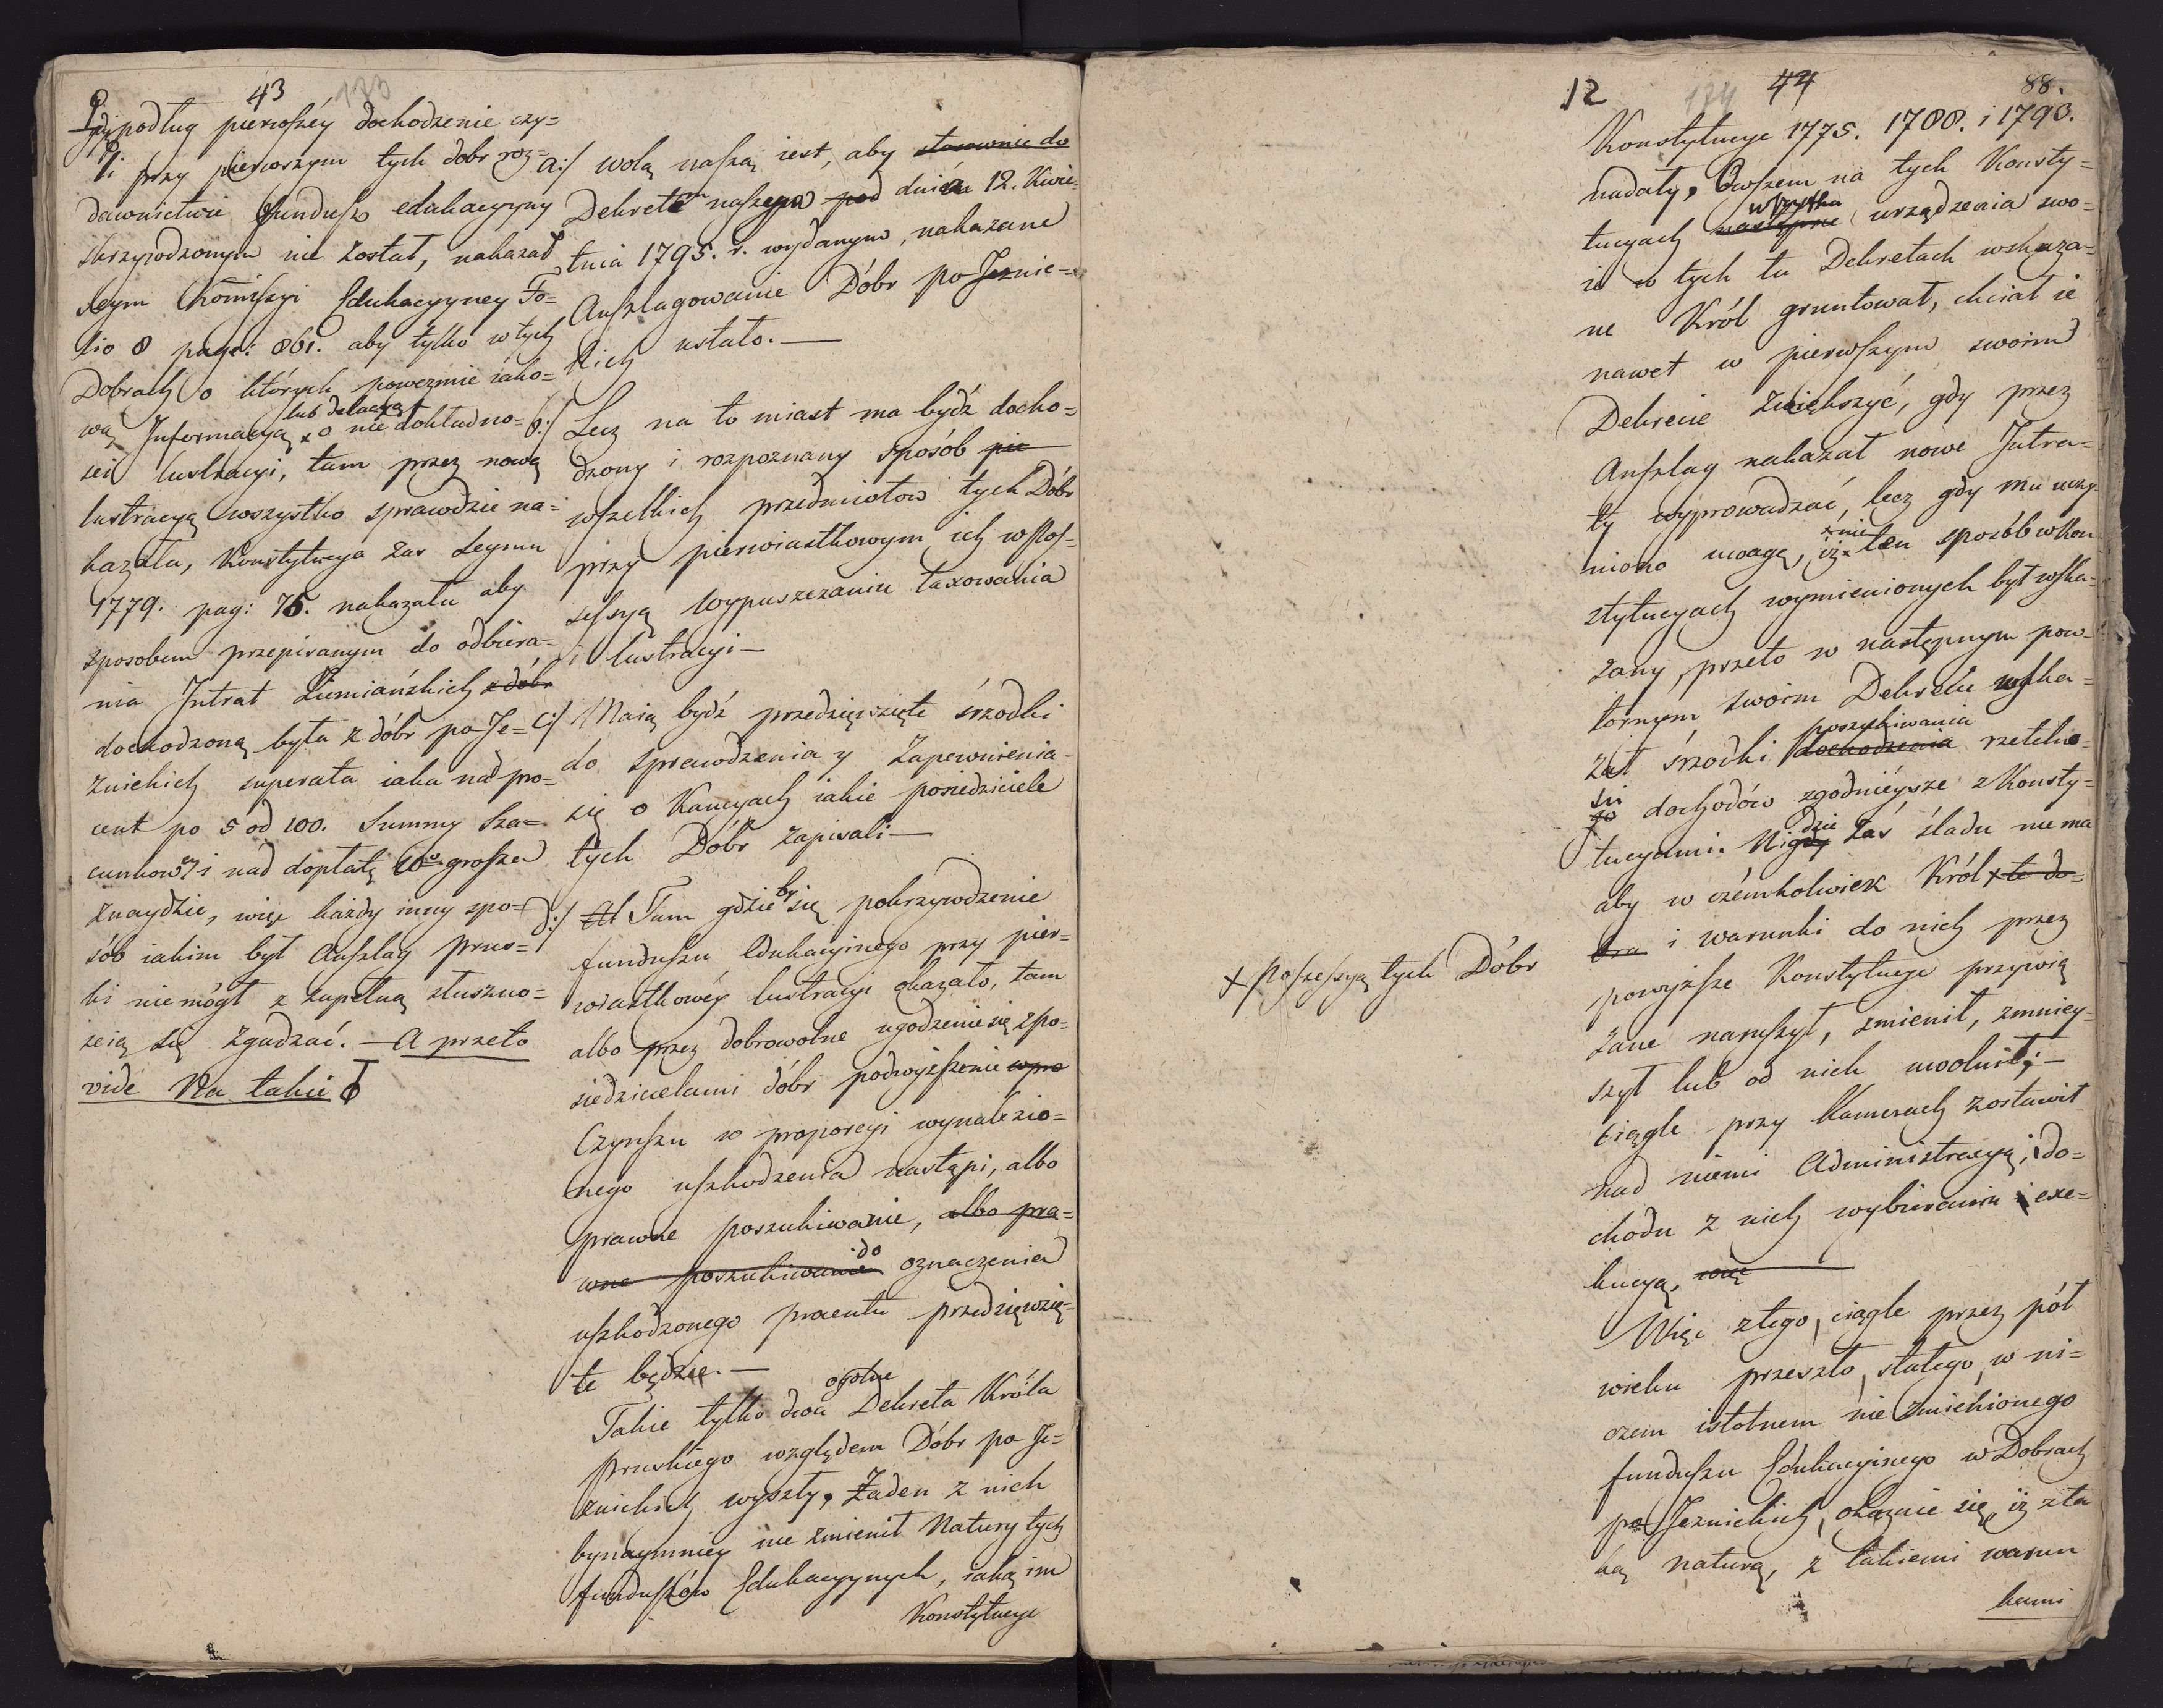 43
133
podług pierwszéy dochodzenie czy=
i przy pierwszym tych dobr roz=
dawnictwie fundusz edukacyyny
skrzywdzonym nie został, nakazał
seym Kom̄issyi Edukacyyney Fo=
lio 8 page: 861. aby tylko w tych
Dobrach o których poweźmie iako=
lub delacyą
wą Informacyą x o nie dokładno=
ści lustracyi, tam przez nową
lustracyą wszystko sprawdzić na=
kazała, Konstytucya zaś Seymu
1779. pag: 75. nakazała aby
sposobem przepisanym do odbiera=
nia Intrat Ziemiańskich z dóbr
dochodzoną była z dóbr po Je=
zuickich superata iaka nad pro=
cent po 5 od 100. Summy Sza=
cunkowéy i nad dopłatę 10º grosza
znaydzie, więc każdy inny spo=
sób iakim był Anszlag Prus=
ki niemógł z zupełną słuszno=
ścią się zgadzać. — A przeto
vide Na takie
a:/ wolą naszą iest, aby stosownie do
Dekretem naszym pod dnia 12. Kwie=
tnia 1795. r. wydanym, nakazane
Anszlagowanie Dóbr po Jezuic=
kich ustało. —
b:/ Lecz na to miast ma bydź docho=
dzony i rozpoznany sposób pie
wszelkich przedmiotow tych Dóbr
przy pierwiastkowym ich w Pos=
sessyą wypuszczaniu taxowania
i lustracyi —
c:/ Maią bydź przedsięwzięte środki
do sprawdzenia y zapewnienia
się o Kaucyach iakie posiedziciele
tych Dóbr zapisali —
d:/ Al Tam gdzie by się pokrzywdzenie
funduszu Edukacyinego przy pier=
wiastkowéy lustracyi okazało, tam
albo przez dobrowolne ugodzenie się z po=
siedzicielami dóbr podwyższenie wpro
Czynszu w proporcyi wynalezio=
nego uszkodzenia nastąpi, albo
prawne poszukiwanie, albo pra=
wne poszukiwanie do oznaczenia
uszkodzonego procentu przedsięwzię=
te będzie. —
ogolne
Takie tylko dwa Dekreta Króla
Pruskiego względem Dóbr po Je=
zuickich wyszły, Żaden z nich
bynaymniey nie zmienił Natury tych
funduszów Edukacyynych, iaką im
Konstytucye
12
134
44
88.
Konstytucye 1775. 1788. i 1793.
nadały, Owszem na tych Konsty=
wszystkie
tucyach następne urządzenia swo=
ie w tych tu Dekretach wskaza=
ne Król gruntował, chciał ie
nawet w pierwszym swoim
Dekrecie zwiększyć, gdy przez
Anszlag nakazał nowe Intra=
ty wyprowadzać, lecz gdy mu uczy=
niono uwagę, iż x nie ten sposób w Kon
stytucyach wymienionych był wska=
zany, przeto w następnym pow=
tornym swoim Dekrecie wska=
poszukiwania
zał śrzodki dochodzenia rzetelno=
ści
go dochodów zgodnieysze z Konsty=
tucyami. Nigdzie zaś śladu nie ma
aby w czémkolwiek Król x te do=
bra i warunki do nich przez
x Possessyą tych Dóbr
powyższe Konstytucye przywią
zane naruszył, zmienił, zmniey=
szył lub od nich uwolnił; —
ciągle przy Kamerach zostawił
nad niemi Administracyą, i do=
chodu z nich wybierania i exe=
kucyą, więc
Więc z tego, ciągle przez pół
wieku przeszło, stałego, w ni=
czem istotnem nie zmienionego
funduszu Edukacyinego w Dobrach
po Jezuickich, okazuie się, iż z ta
ką naturą, z takiemi warun
kami